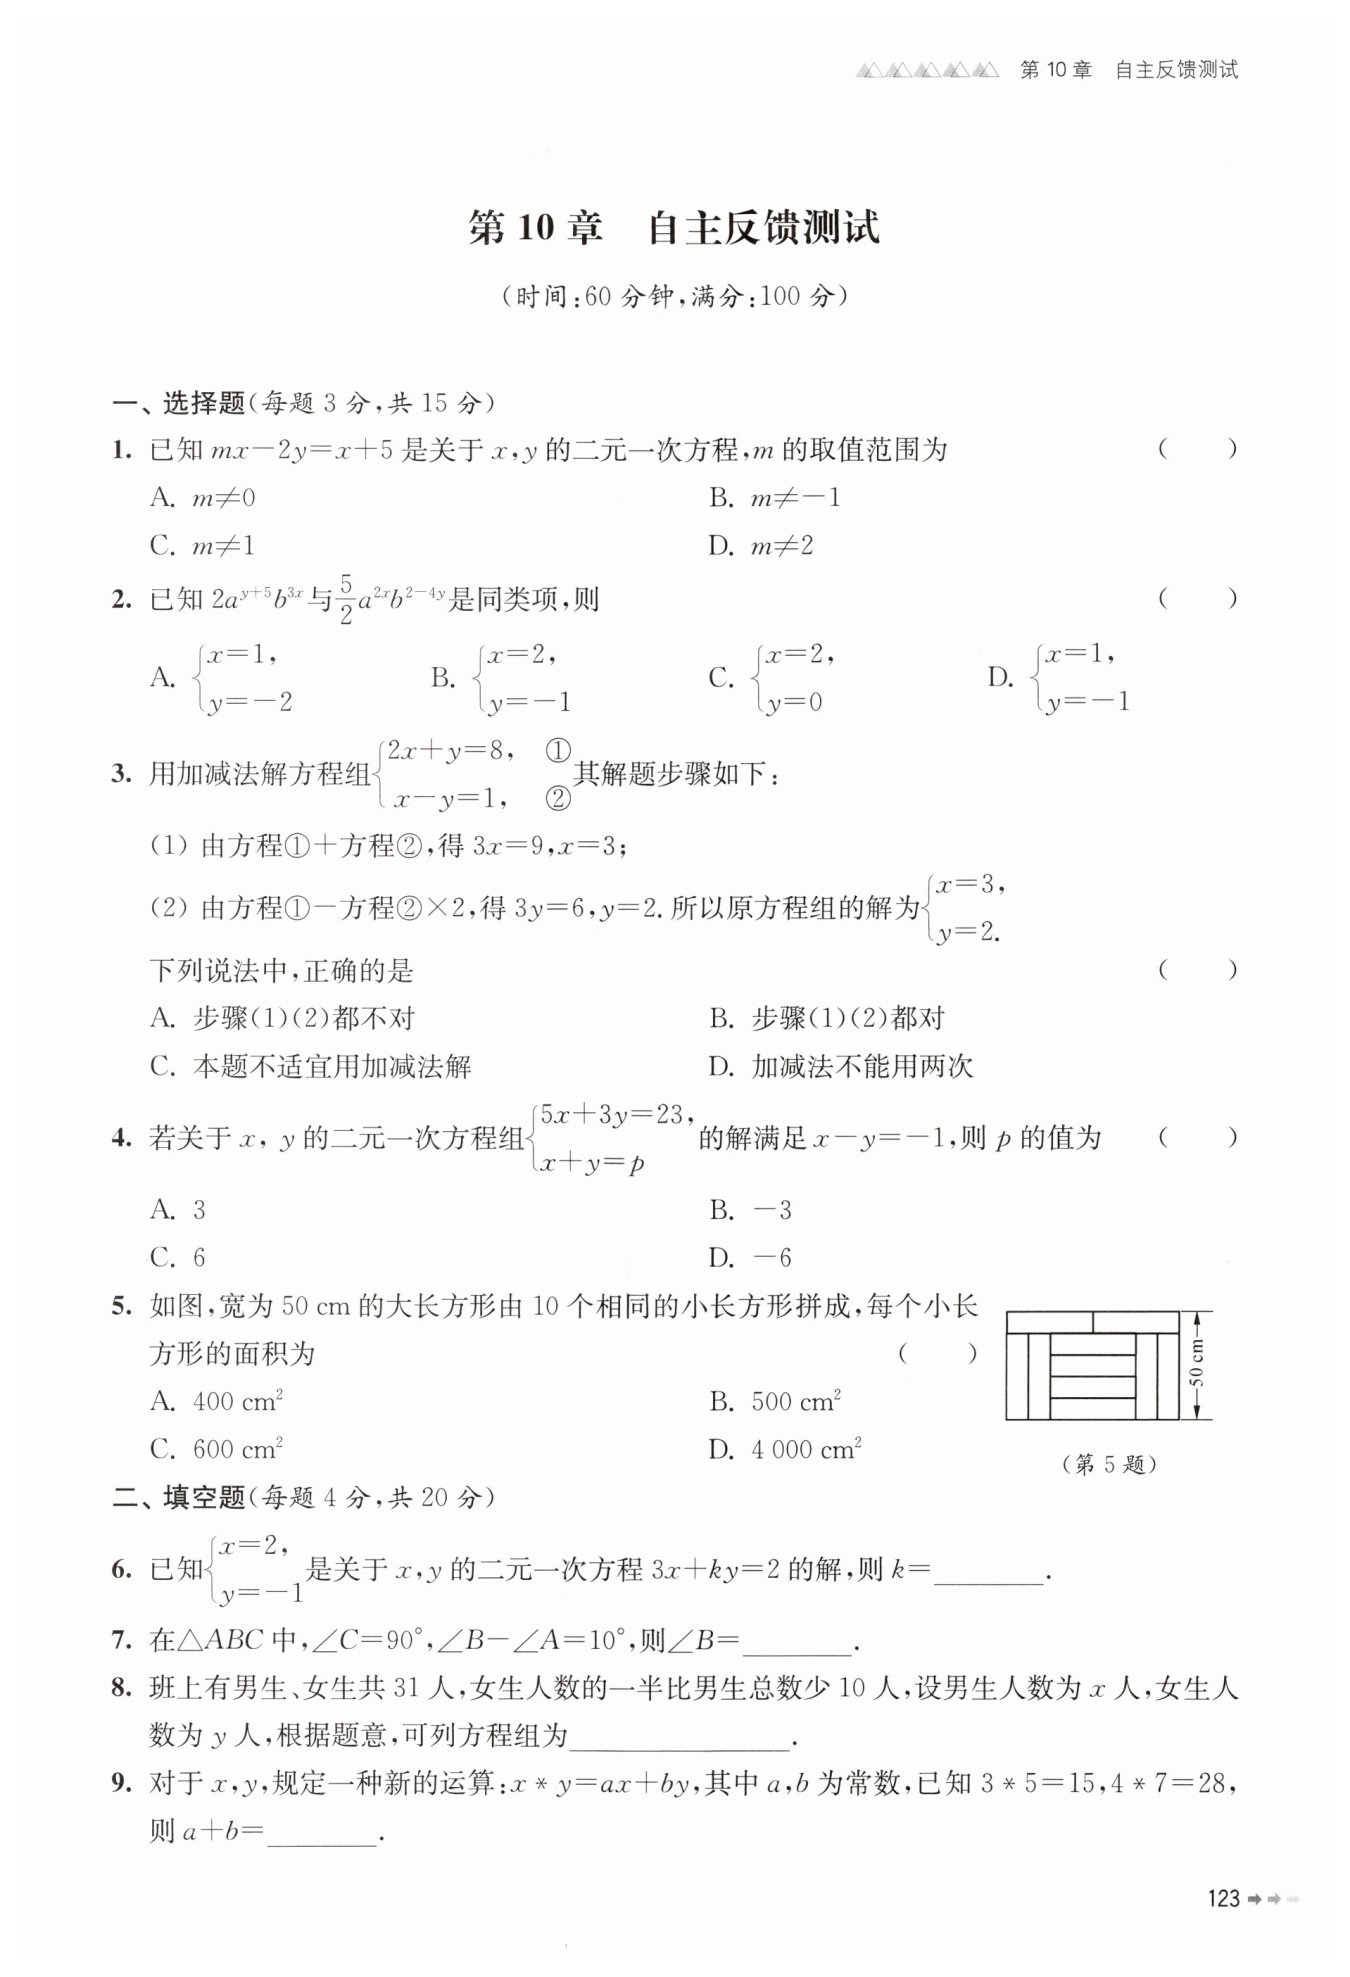 第 10 章 自主反馈测试
第 10 章 自主反馈测试
(时间:60 分钟,满分:100 分)
一、选择题(每题 3 分,共 15 分)
1. 已知 mx－2y＝x＋5 是关于 x,y 的二元一次方程,m 的取值范围为 ( )
A. m≠0 B. m≠－1
C. m≠1 D. m≠2
2. 已知 2a^{y+5}b^{3x}与\frac{5}{2}a^{2x}b^{2-4y}是同类项,则 ( )
A. {x＝1, y＝－2 B. {x＝2, y＝－1 C. {x＝2, y＝0 D. {x＝1, y＝－1
3. 用加减法解方程组{2x＋y＝8, ① x－y＝1, ② 其解题步骤如下:
(1) 由方程①＋方程②,得 3x＝9,x＝3;
(2) 由方程①－方程②×2,得 3y＝6,y＝2. 所以原方程组的解为{x＝3, y＝2.
下列说法中,正确的是 ( )
A. 步骤(1)(2)都不对 B. 步骤(1)(2)都对
C. 本题不适宜用加减法解 D. 加减法不能用两次
4. 若关于 x, y 的二元一次方程组{5x＋3y＝23, x＋y＝p 的解满足 x－y＝－1,则 p 的值为 ( )
A. 3 B. －3
C. 6 D. －6
5. 如图,宽为 50 cm 的大长方形由 10 个相同的小长方形拼成,每个小长
方形的面积为 ( )
A. 400 cm² B. 500 cm²
C. 600 cm² D. 4 000 cm²
50 cm
(第 5 题)
二、填空题(每题 4 分,共 20 分)
6. 已知{x＝2, y＝－1 是关于 x,y 的二元一次方程 3x＋ky＝2 的解,则 k＝________.
7. 在△ABC 中,∠C＝90°,∠B－∠A＝10°,则∠B＝________.
8. 班上有男生、女生共 31 人,女生人数的一半比男生总数少 10 人,设男生人数为 x 人,女生人
数为 y 人,根据题意,可列方程组为________________.
9. 对于 x,y,规定一种新的运算:x * y＝ax＋by,其中 a,b 为常数,已知 3 * 5＝15,4 * 7＝28,
则 a＋b＝________.
123